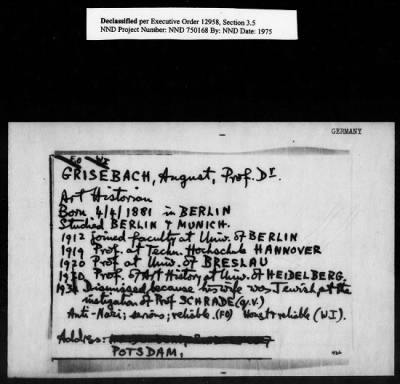 Declassified per Executive Order 12958, Section 3.5
NND Project Number: NND 750168 By: NND Date: 1975
GERMANY
FO WI
GRISEBACH, August, Prof. Dr.
Art Historian
Born 4/4/1881 in BERLIN
Studied BERLIN & MUNICH.
1912 joined faculty at Univ. of BERLIN
1919 Prof. at Techn. Hochschule HANNOVER
1920 Prof at Univ. of BRESLAU
1930 Prof. of Art History at Univ. of HEIDELBERG.
193 Dismissed because his wife was Jewish, at the
instigation of Prof SCHRADE (q.v.)
Anti-Nazi; serious; reliable. (FO) Honest & reliable (W.I).
Address:
POTSDAM.